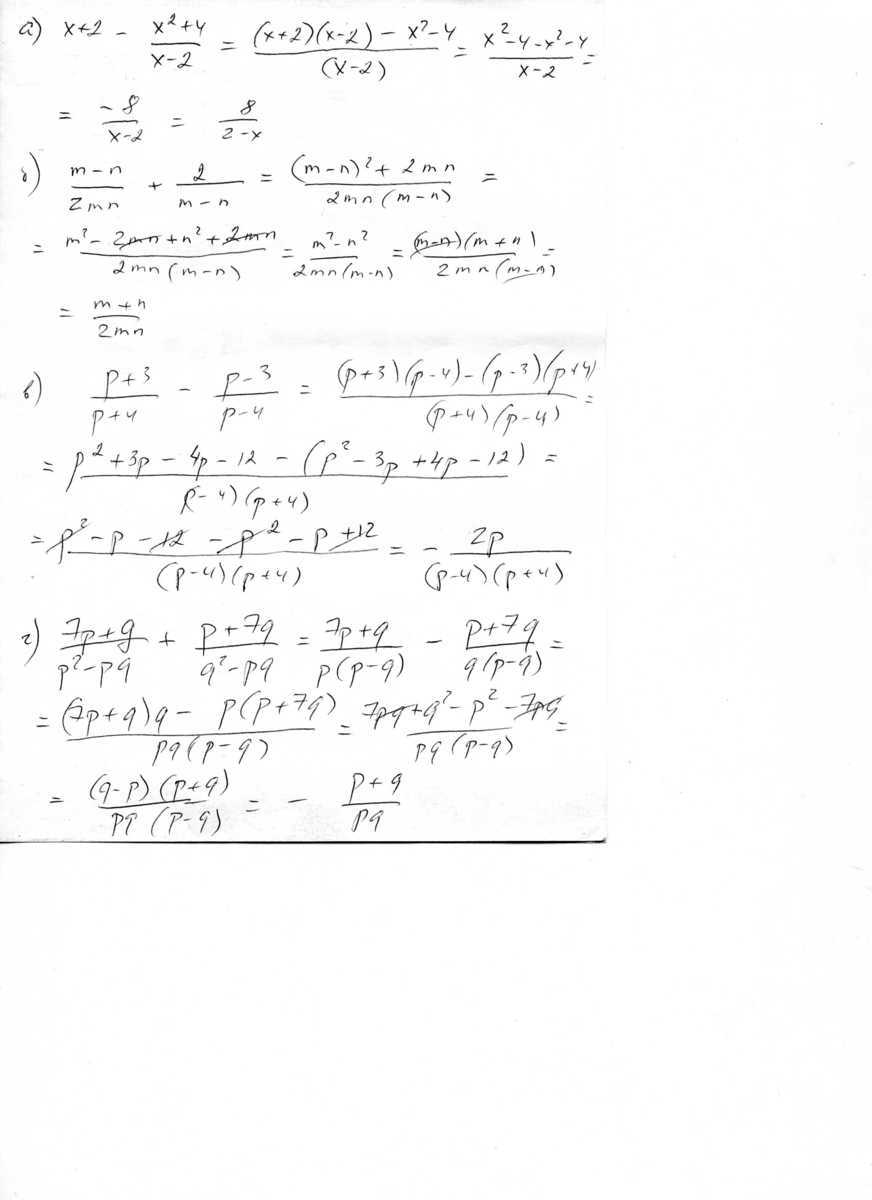 а) x+2 - (x²+4)/(x-2) = ((x+2)(x-2) - x²-4)/(x-2) = (x²-4-x²-4)/(x-2) =
= (-8)/(x-2) = 8/(2-x)
б) (m-n)/(2mn) + 2/(m-n) = ((m-n)²+2mn)/(2mn(m-n)) =
= (m²-2mn+n²+2mn)/(2mn(m-n)) = (m²-n²)/(2mn(m-n)) = ((m-n)(m+n))/(2mn(m-n)) =
= (m+n)/(2mn)
в) (p+3)/(p+4) - (p-3)/(p-4) = ((p+3)(p-4)-(p-3)(p+4))/((p+4)(p-4)) =
= (p²+3p-4p-12-(p²-3p+4p-12))/((p-4)(p+4)) =
= (p²-p-12-p²-p+12)/((p-4)(p+4)) = - 2p/((p-4)(p+4))
г) (7p+q)/(p²-pq) + (p+7q)/(q²-pq) = (7p+q)/(p(p-q)) - (p+7q)/(q(p-q)) =
= ((7p+q)q - p(p+7q))/(pq(p-q)) = (7pq+q²-p²-7pq)/(pq(p-q)) =
= ((q-p)(p+q))/(pq(p-q)) = - (p+q)/(pq)